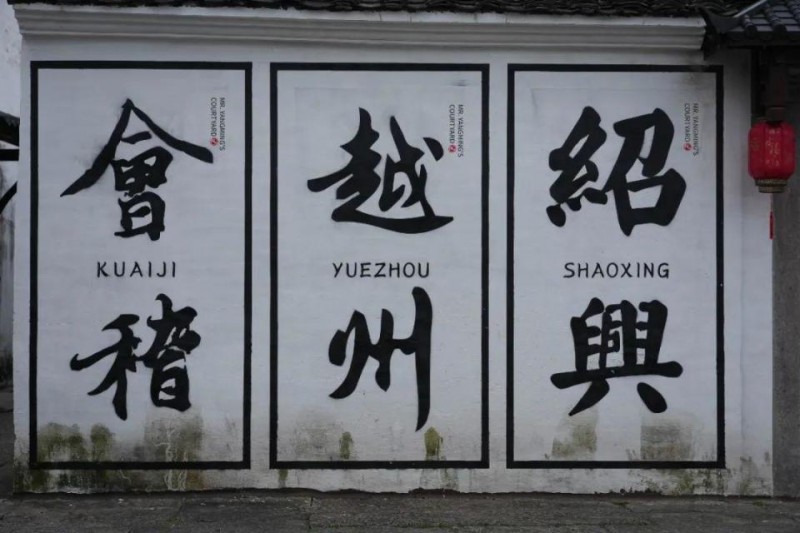 會
KUAIJI
稽
MR. YANGMING'S
COURTYARD
越
YUEZHOU
州
MR. YANGMING'S
COURTYARD
紹
SHAOXING
興
MR. YANGMING'S
COURTYARD